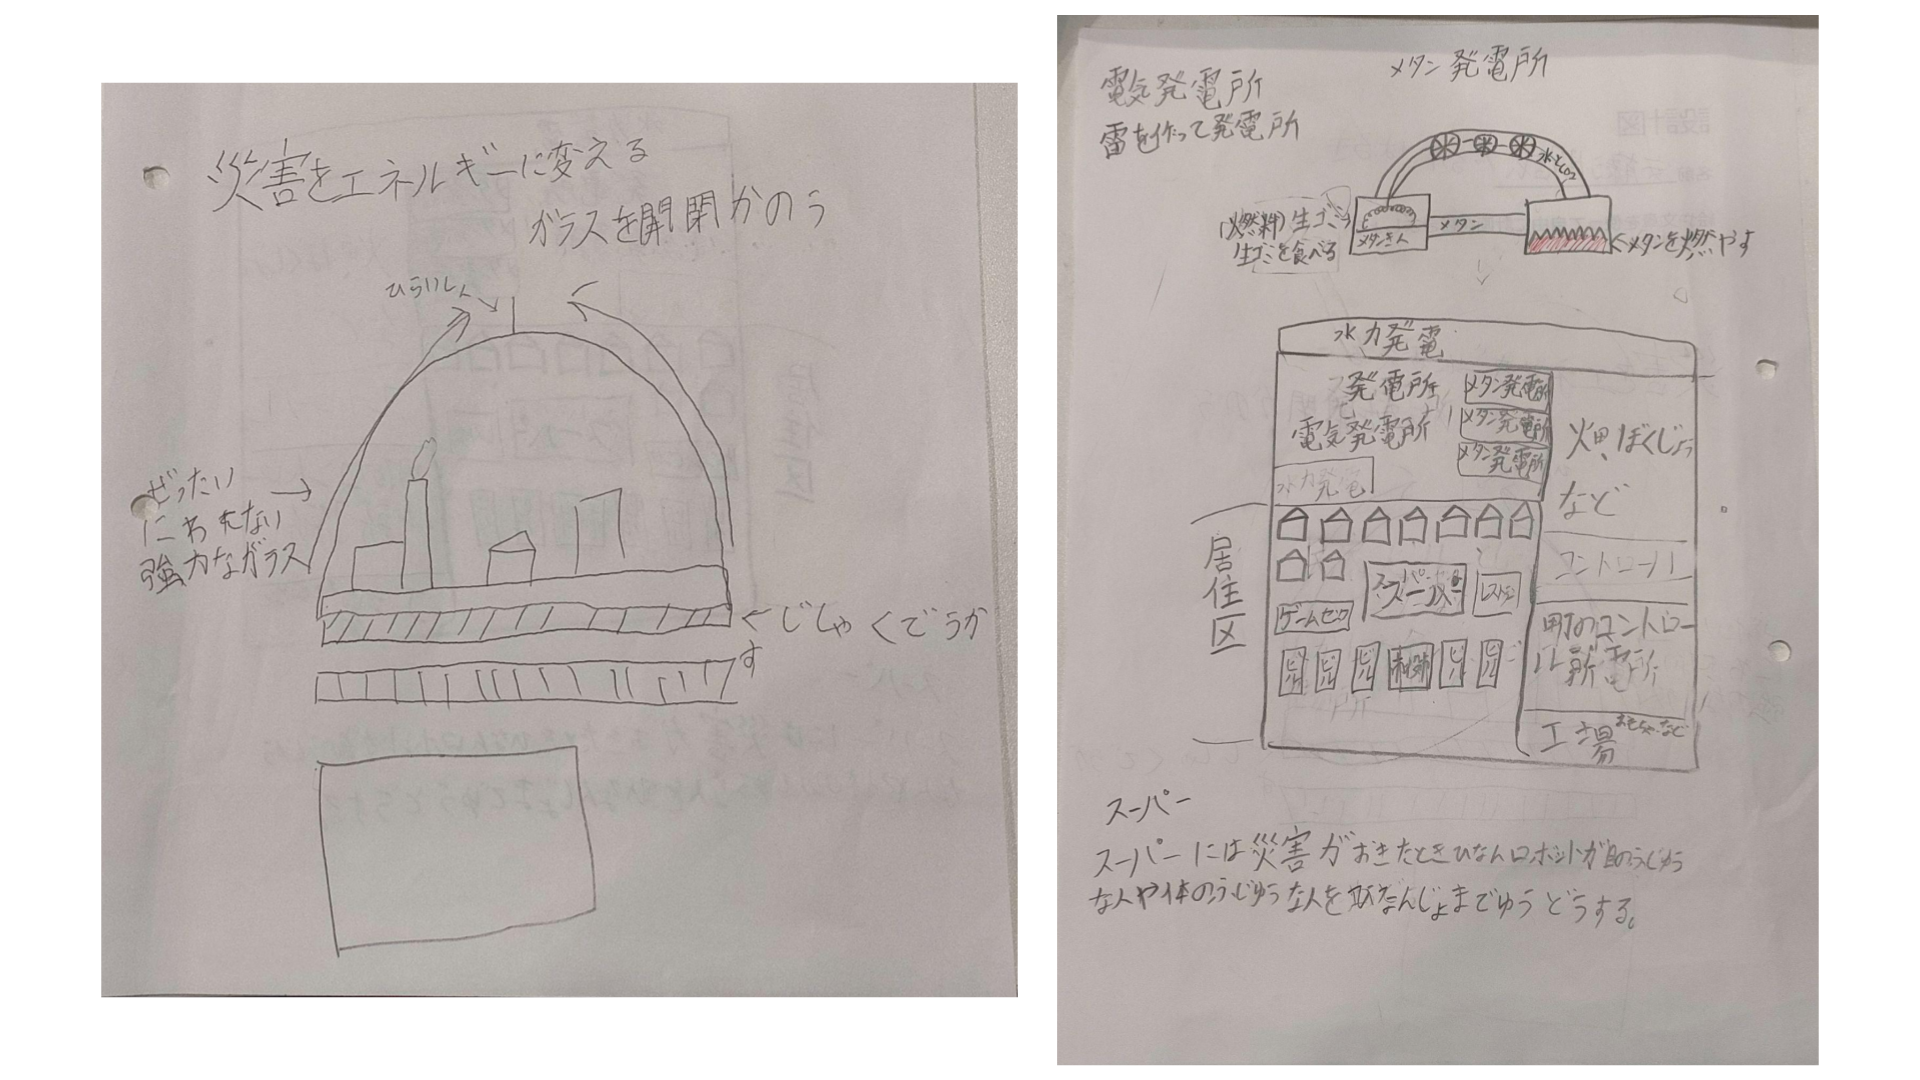 災害をエネルギーに変える
ガラスを開閉かのう
ひらいしん
ぜったい
にわれない
強力なガラス
じしゃくでうか
す
メタン発電所
電気発電所
雷を作って発電所
水とCO2
(燃料)生ゴミ
生ゴミを食べる
メタンきん
メタン
メタンを燃やす
水力発電
発電所
電気発電所
メタン発電所
メタン発電所
メタン発電所
水力発電
畑、ぼくじょう
など
コントロール
町のコントロー
ル
電所
居住区
スーパー
レストラン
ゲームセンター
ビル
ビル
ビル
ビル
ビル
工場
おもちゃなど
スーパー
スーパーには災害がおきたときひなんロボットが目のふじゆう
な人や体のふじゆうな人をひなんじょまでゆうどうする。